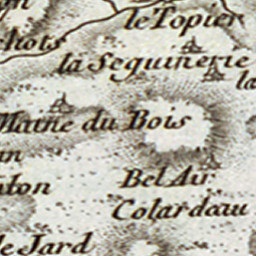 le Topier
la Seguinerie
la
Maine du Bois
Bel Air
Colardau
le Jard